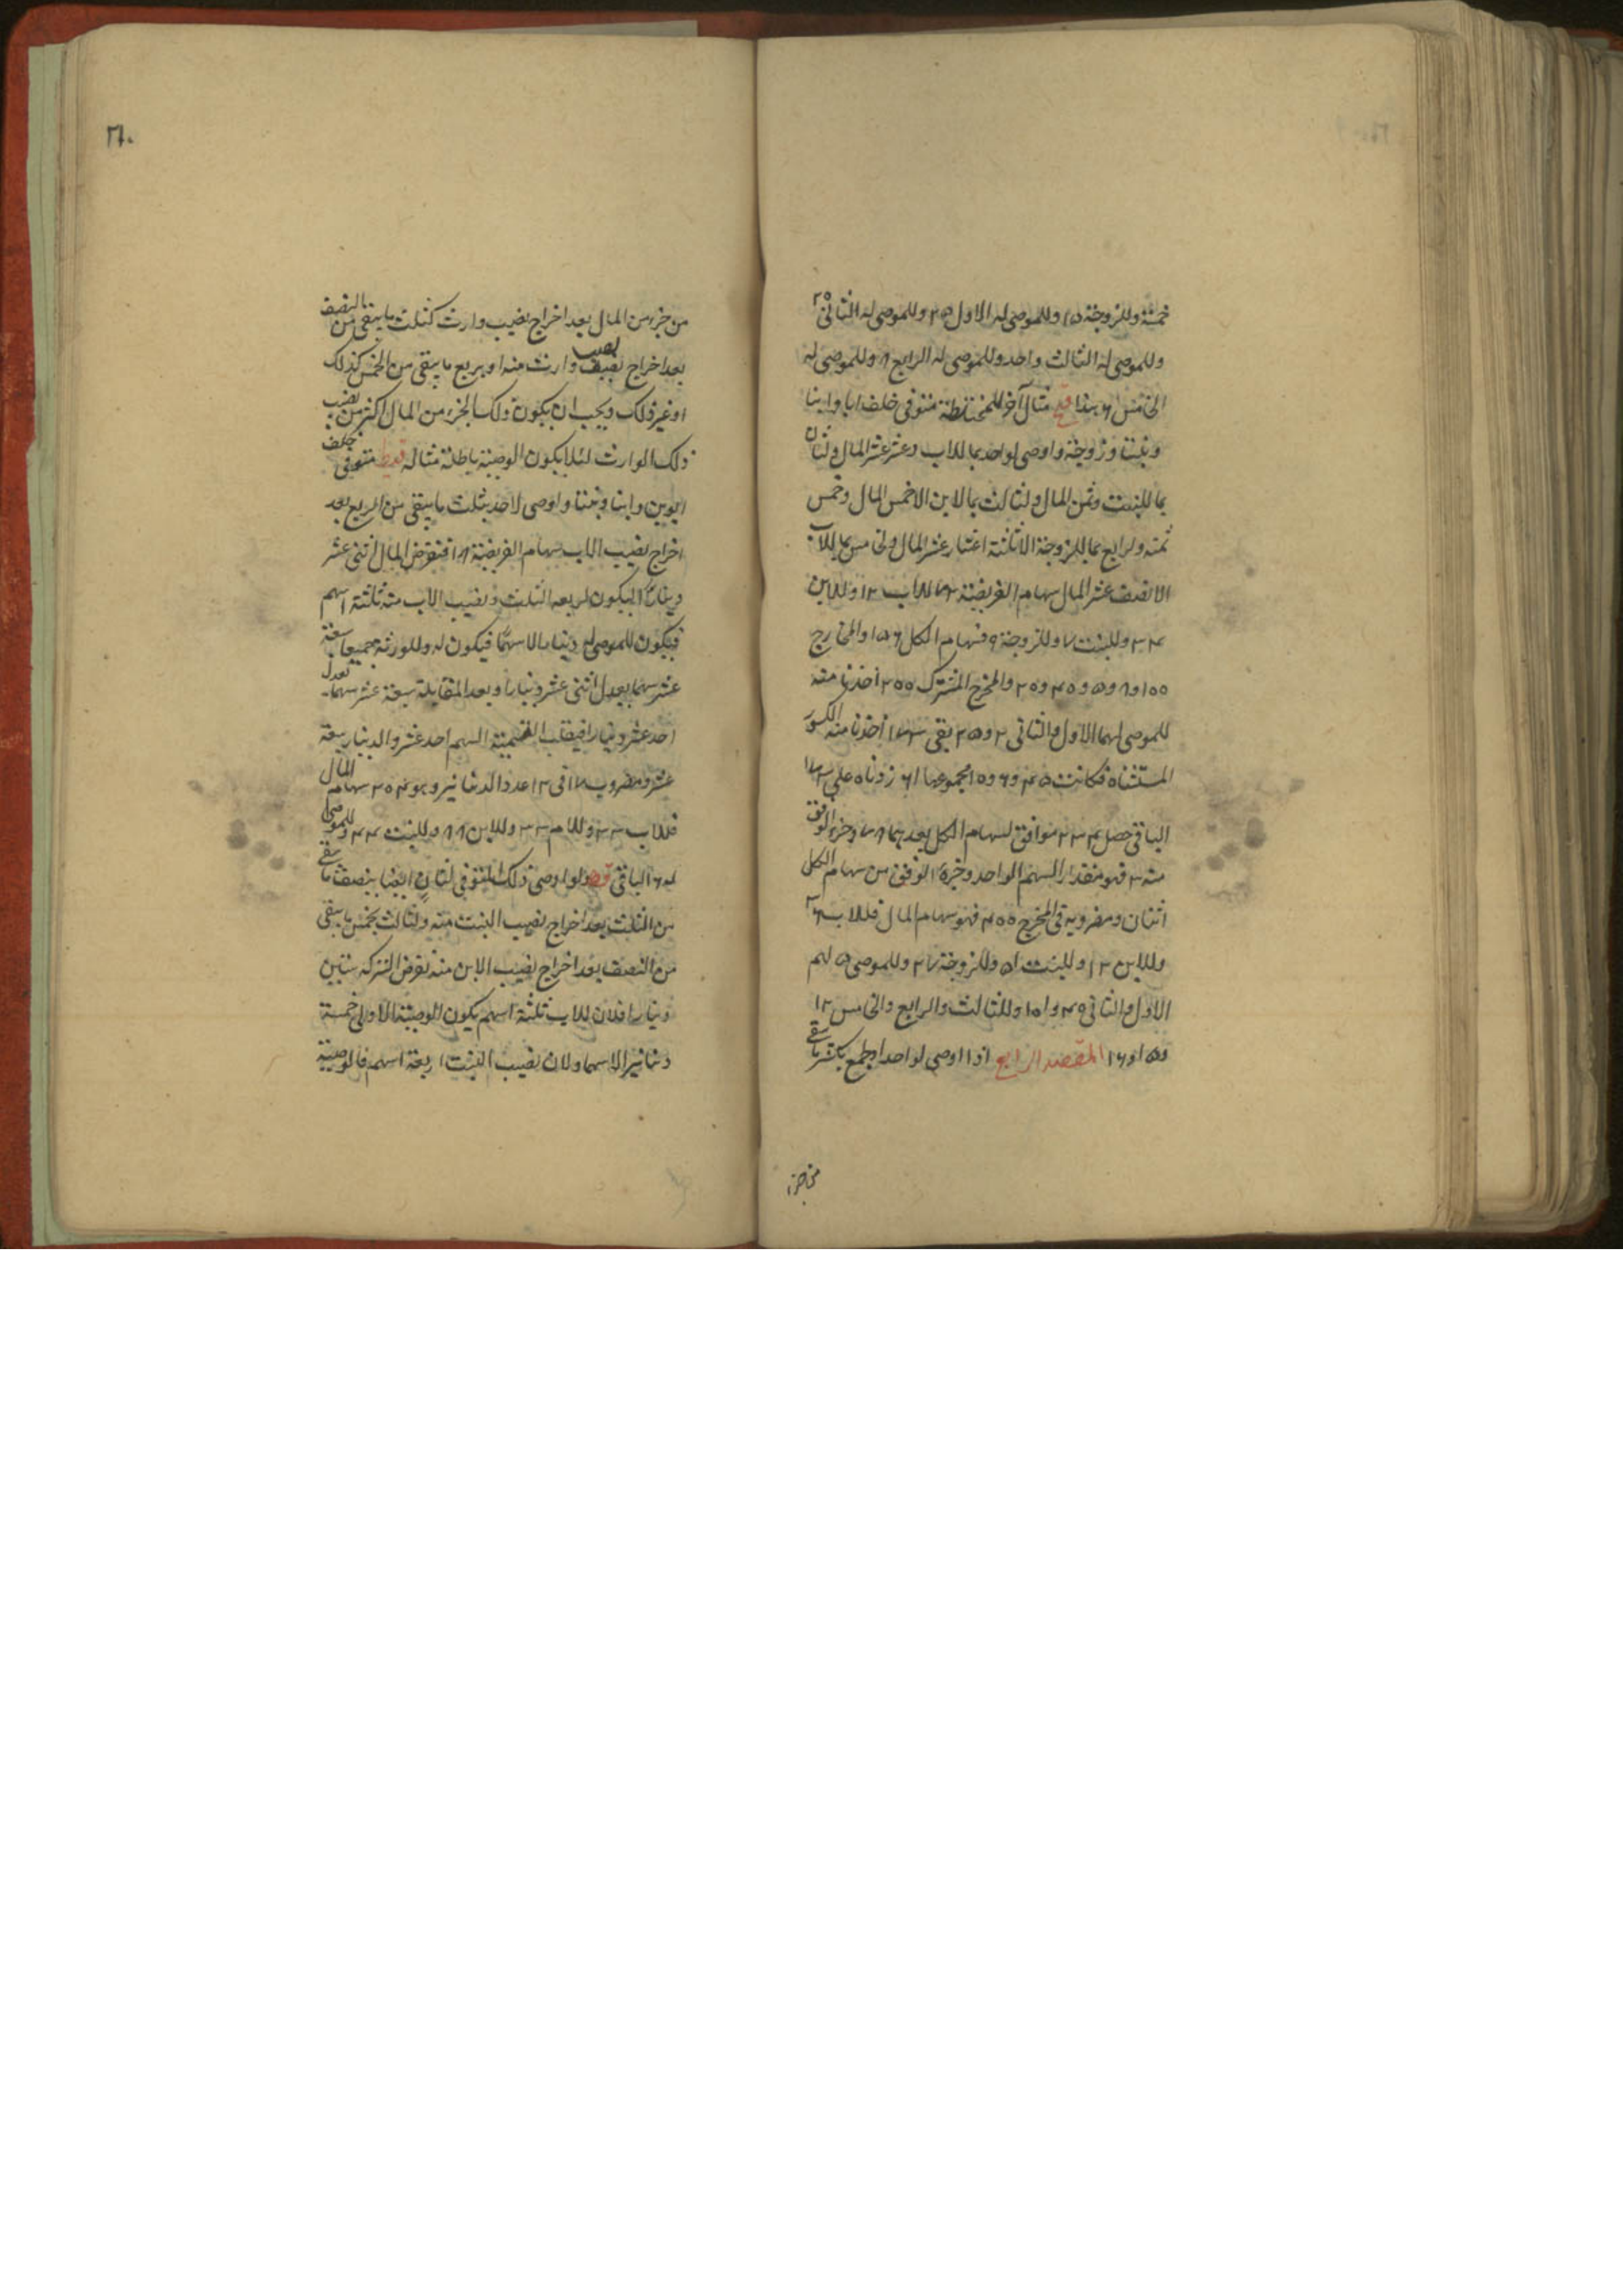 خمسة وللزوجة ١٥ وللموصى له الاول ٢٥ وللموصى له الثانى ٢٥
وللموصى له الثالث واحد وللموصى له الرابع ٨ وللموصى له
الخامس ٦ هذا مثال آخر للمختلطة متوفى خلف ابا وابنا
وبنتا وزوجة واوصى لواحد بما للاب وعشر عشر المال ولثان
بما للبنت وثمن المال ولثالث بما لابن الا خمس المال وخمس
ثمنه ولرابع بما للزوجة الا ثلثة اعشار عشر المال ولخامس بما للاب
الا نصف عشر المال سهام الفريضة ٧٢ للاب ١٢ وللابن
٣٤ وللبنت ١٧ وللزوجة ٩ فسهام الكل ١٥٦ والمخارج
والمخرج المشترك ٢٠٠ اخذنا منه
للموصى لهما الاول والثانى ٢ و ٢٥ بقى ١٧٣ اخذنا منه الكسور
المستثناة فكانت ٤٥ و ٦ و ١٠ مجموعها ٦١ زدناه على ١٧٣
الباقى حصل ٢٣٤ موافق لسهام الكل يعدهما ٧٨ وجزء الوفق
منه ٣ فهو مقدار السهم الواحد وجزء الوفق من سهام الكل
اثنان ومضروبه فى المخرج ٤٠٠ فهو سهام المال فللاب ٣٦
وللابن ١٠٢ وللبنت ٥١ وللزوجة ٢٧ وللموصى لهم
الاول والثانى ٤٠ و ١٠١ وللثالث والرابع والخامس ١٢
و ١٥ و ١٦ المقصد الرابع اذا اوصى لواحد او لجمع بكسر ما يبقى
من جزء
٢٦٠
من جزء من المال بعد اخراج نصيب وارث كثلث ما يبقى من النصف
بعد اخراج نصيب وارث منه او بربع ما يبقى من الخمس كذلك
او غير ذلك ويجب ان يكون ذلك الجزء من المال اكثر من نصيب
ذلك الوارث لئلا يكون الوصية باطلة مثاله متوفى خلف
ابوين وابنا وبنتا واوصى لاحد بثلث ما يبقى من الربع بعد
اخراج نصيب الاب سهام الفريضة ١٨ فنفرض المال اثنى عشر
دينارا ليكون لربعه الثلث ونصيب الاب منه ثلثة اسهم
فيكون للموصى له دينار الا سهما فيكون له وللورثة جميعا سبعة
عشر سهما يعدل اثنى عشر دينارا وبعد المقابلة سبعة عشر سهما يعدل
احد عشر دينارا فيقلب القسمة السهم احد عشر والدينار سبعة
عشر ومضروب ١٧ فى ١٢ عدد الدنانير وهو ٢٠٤ سهام المال
فللاب ٣٣ وللام ٣٣ وللابن ٨٨ وللبنت ٤٤ وللموصى
له ٦ الباقى ولو اوصى ذلك المتوفى لثان ايضا بنصف ما يبقى
من الثلث بعد اخراج نصيب البنت منه ولثالث بخمس ما يبقى
من النصف بعد اخراج نصيب الابن منه نفرض التركة ستين
دينارا فلان للاب ثلثة اسهم يكون الوصية الاولى خمسة
دنانير الا سهما ولان نصيب البنت اربعة اسهم فالوصية